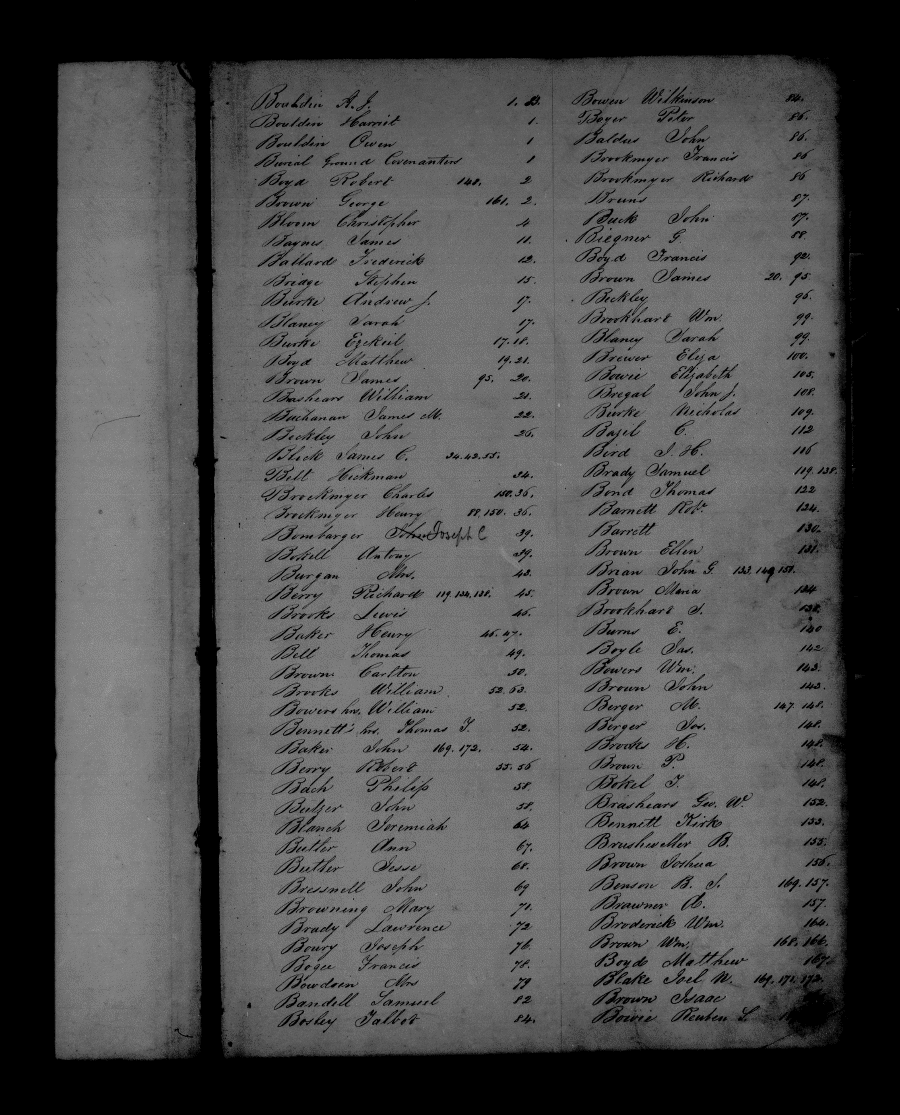 Bouldin A. J. 1. 23.
Bouldin Harriet 1.
Bouldin Owen 1
Burial Ground Covenanters 1
Boyd Robert 148. 2
Brown George 161. 2.
Bloom Christopher 4
Baynes James 11.
Ballard Frederick 12.
Bridge Stephen 15.
Burke Andrew J. 17.
Blaney Sarah 17.
Burke Ezekiel 17. 18.
Boyd Matthew 19. 21.
Brown James 95. 20.
Bashears William 21.
Buchanan James M. 22.
Beckley John 26.
Block James C. 34. 42. 55.
Belt Hickman 34.
Brockmyer Charles 150. 36.
Brockmyer Henry 88. 150. 36.
Bombarger Joseph C 39.
Bokell Antony 39.
Burgan Mrs. 43.
Berry Richard 119. 134. 138. 45.
Brooks Lewis 46.
Baker Henry 46. 47.
Bell Thomas 49.
Brown Carlton 50.
Brooks William 52. 63.
Bowers hrs. William 52.
Bennett's hrs. Thomas T. 52.
Baker John 169. 172. 54.
Berry Robert 55. 56
Bach Philip 58.
Butzer John 58.
Blanch Jeremiah 64
Butler Ann 67.
Butler Jesse 68.
Bressnell John 69
Browning Mary 71.
Brady Lawrence 72
Boury Joseph 76.
Bogee Francis 78.
Bowdoen Mrs 79
Bandell Samuel 82
Bosley Talbot 84.
Bowen Wilkinson 84.
Boyer Peter 86.
Baldus John 86.
Brookmyer Francis 86
Brookmyer Richard 86
Bruns 87.
Buck John 17.
Biegner G. 88.
Boyd Francis 92.
Brown James 20. 95
Beckley 96.
Brookhart Wm. 99.
Blaney Sarah 99.
Brewer Eliza 100.
Bowie Elizabeth 105.
Bregal John J. 108.
Burke Nicholas 109.
Bazel C. 112
Bird J. H. 116
Brady Samuel 119. 138.
Bond Thomas 122
Barnett Robt. 124.
Barrett 130.
Brown Ellen 131.
Brian John G. 133. 149. 151.
Brown Maria 134
Brookhart J. 138.
Burns E. 140
Boyle Jas. 142
Bowers Wm. 143.
Brown John 143.
Berger M. 147. 148.
Berger Jos. 148.
Brooks H. 148.
Brown P. 148.
Bokel T. 148.
Brashears Geo. W. 152.
Bennett Kirk 153.
Brusheweller B. 155.
Brown Joshua 156.
Benson B. S. 169. 157.
Brawner A. 157.
Broderick Wm. 164.
Brown Wm. 168. 166.
Boyd Matthew 167.
Blake Joel N. 169. 171. 172.
Brown Isaac
Bowie Reuben L.